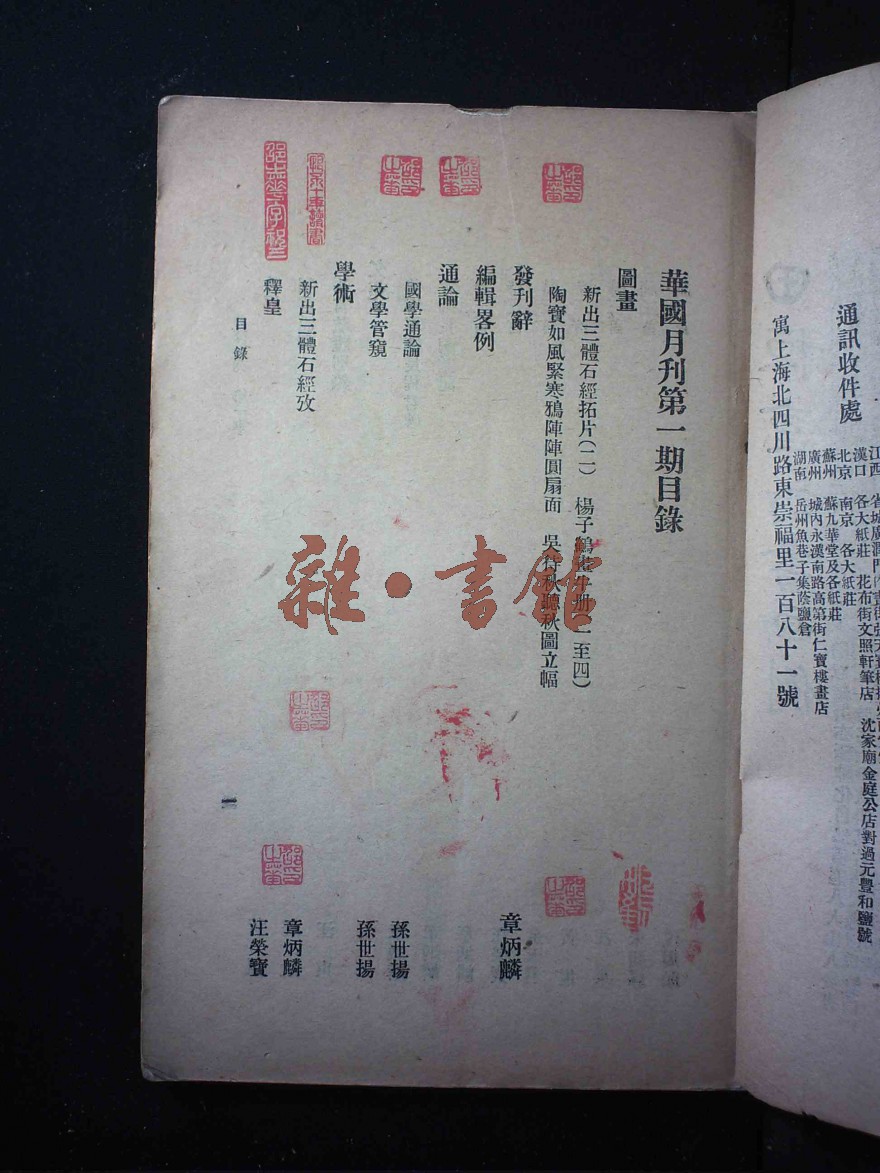 通訊收件處
寓上海北四川路東崇福里一百八十一號
漢口 各大紙莊 花布街文照軒筆店 沈家廟金庭公店對過元豐和鹽號
北京 南京 各大紙莊
蘇州 蘇九華堂及各紙莊
廣州 城內永漢南路高第街仁寶樓書店
湖南 岳州魚巷子集蔭鹽倉
華國月刊第一期目錄
圖畫
新出三體石經拓片(二) 楊子鶴畫 册(一至四)
陶寶如風緊寒鴉陣陣圓扇面 吳待秋聽秋圖立幅
發刊辭 章炳麟
編輯畧例
通論
國學通論 孫世揚
文學管窺 孫世揚
學術
新出三體石經攷 章炳麟
釋皇 汪榮寶
目錄
一
雜·書館